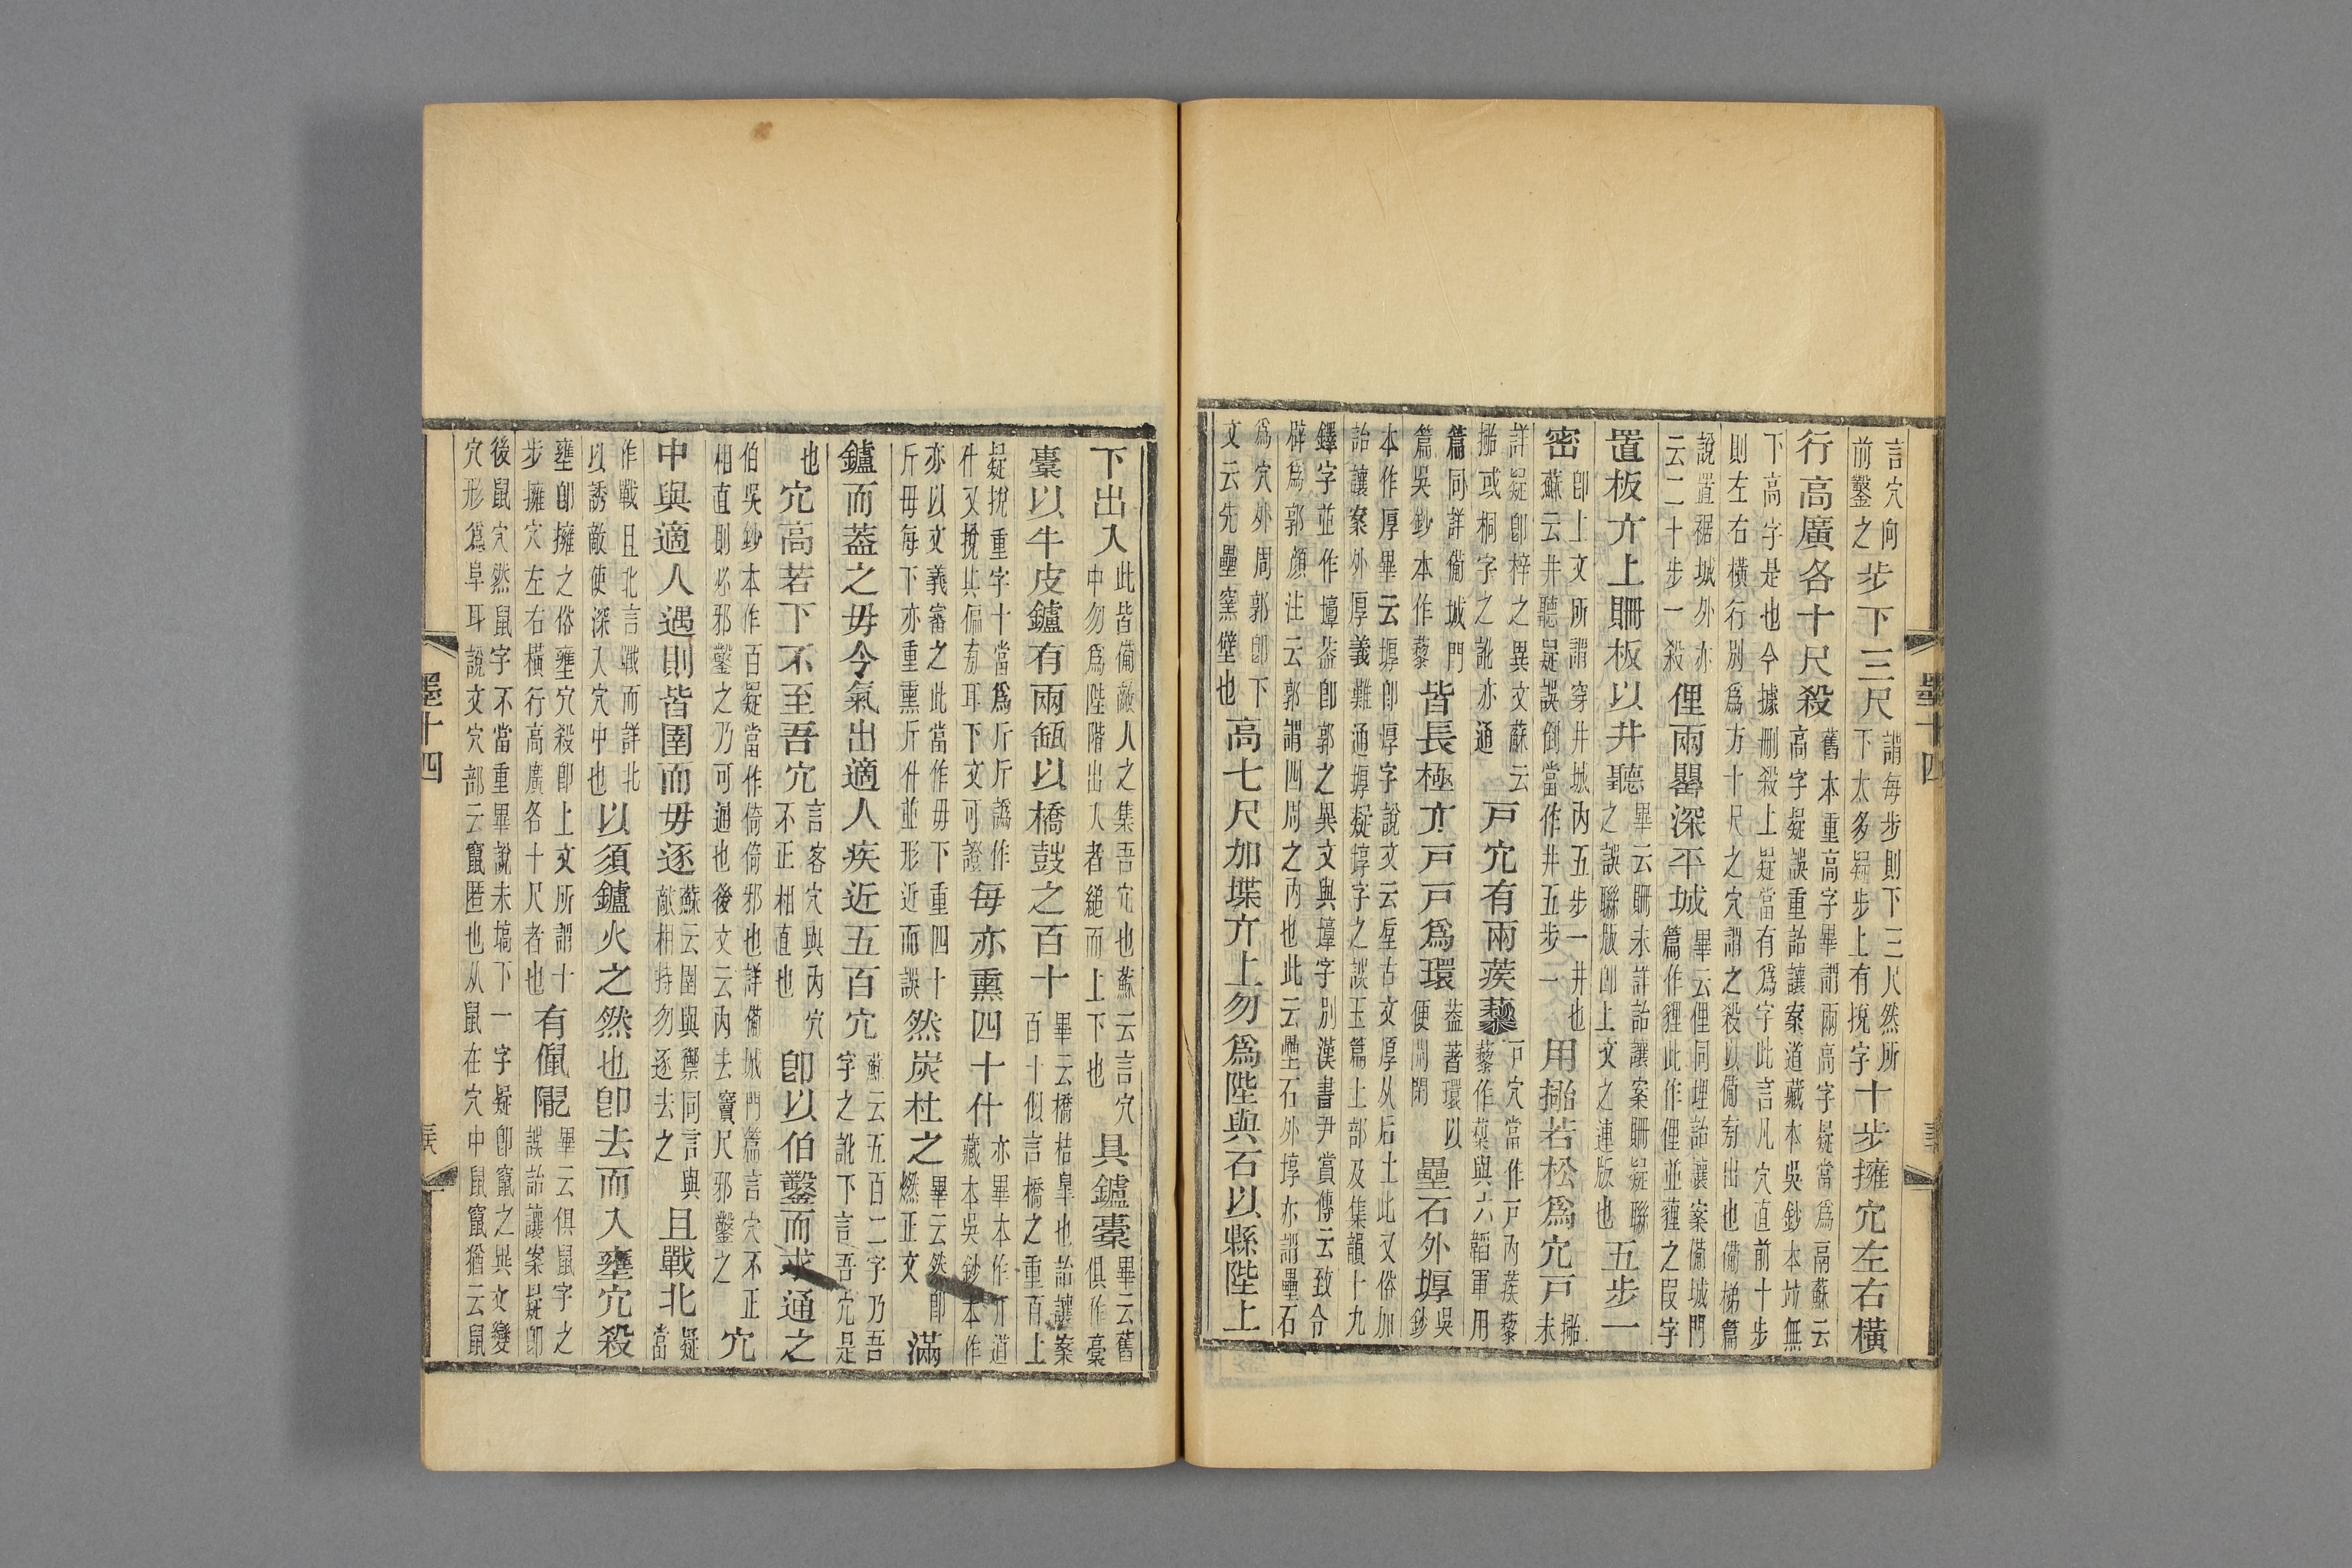 言穴向前鑿之步下三尺謂每步則下三尺然所下太多疑步上有挩字十步擁穴左右橫
行高廣各十尺殺舊本重高字畢謂兩高字疑當爲鬲蘇云高字疑誤重詒讓案道藏本吳鈔本竝無
下高字是也今據刪殺上疑當有爲字此言凡穴直前十步則左右橫行別爲方十尺之穴謂之殺以備旁出也備梯篇
說置裾城外亦云二十步一殺俚兩罌深平城畢云俚同埋詒讓案備城門篇作貍此作俚並薶之叚字
置板亣上𠕢板以井聽畢云𠕢未詳詒讓案𠕢疑聯之誤聯版卽上文之連版也五步一
密卽上文所謂穿井城內五步一井也蘇云井聽疑誤倒當作井五步一用𣓌若松爲穴戶𣓌未
詳疑卽梓之異文蘇云𣓌或桐字之訛亦通戶穴有兩蒺藜戶穴當作戶內蒺藜藜作蔾與六韜軍用
篇同詳備城門篇吳鈔本作藜皆長極亣戶戶爲環葢著環以便開閉壘石外𡌤吳鈔
本作厚畢云𡌤卽厚字說文云垕古文厚从后土此又俗加詒讓案外厚義難通𡌤疑埻字之誤玉篇土部及集韻十九
鐸字並作墇葢卽郭之異文與墇字別漢書尹賞傳云致令辟爲郭顏注云郭謂四周之內也此云壘石外埻亦謂壘石
爲穴外周郭卽下文云先壘窯壁也高七尺加堞亣上勿爲陛與石以縣陛上
墨十四
下出入此皆備敵人之集吾穴也蘇云言穴中勿爲陛階出入者縋而上下也具鑪橐畢云舊俱作槖
橐以牛皮鑪有兩缻以橋鼓之百十畢云橋桔皐也詒讓案百十似言橋之重百上
疑挩重字十當爲斤斤譌作什又挩其偏旁耳下文可證每亦熏四十什亦畢本作亣道藏本吳鈔本作
亦以文義審之此當作毋下重四十斤毋每下亦重熏斤什並形近而誤然炭杜之畢云然卽燃正文滿
鑪而蓋之毋令氣出適人疾近五百穴蘇云五百二字乃吾字之訛下言吾穴是
也穴高若下不至吾穴言客穴與內穴不正相直也卽以伯鑿而求通之
伯吳鈔本作百疑當作倚倚邪也詳備城門篇言穴不正相直則必邪鑿之乃可通也後文云內去竇尺邪鑿之穴
中與適人遇則皆圉而毋逐蘇云圉與禦同言與敵相持勿逐去之且戰北疑當
作戰且北言戰而詳北以誘敵使深入穴中也以須鑪火之然也卽去而入壅穴殺
壅卽擁之俗壅穴殺卽上文所謂十步擁穴左右橫行高廣各十尺者也有佷䑕畢云俱鼠字之誤詒讓案疑卽
後鼠穴然鼠字不當重畢說未塙下一字疑卽竄之異文變穴形爲阜耳說文穴部云竄匿也从鼠在穴中鼠竄猶云鼠
墨十四